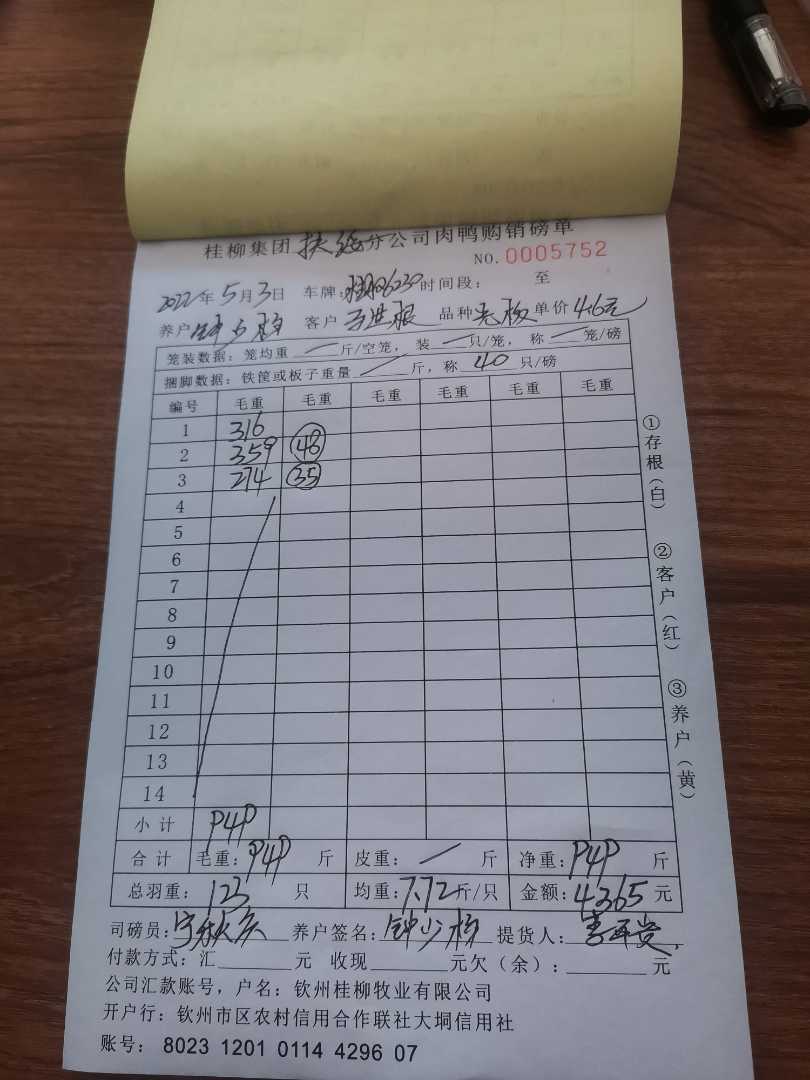 桂柳集团 分公司肉鸭购销磅单
NO.0005752
2022年5月3日 车牌: 6230 时间段: 至
养户 钟少梅 客户 品种 单价 4.6元
笼装数据: 笼均重 / 斤/空笼, 装 / 只/笼, 称 / 笼/磅
捆脚数据: 铁筐或板子重量 / 斤, 称 40 只/磅
编号 毛重 毛重 毛重 毛重 毛重 毛重
1 316
2 359 48
3 274 35
4
5
6
7
8
9
10
11
12
13
14
小计 949
合计 毛重: 949 斤 皮重: / 斤 净重: 949 斤
总羽重: 123 只 均重: 7.72 斤/只 金额: 4365 元
司磅员: 养户签名: 钟少梅 提货人:
付款方式: 汇 元 收现 元欠(余): 元
公司汇款账号, 户名: 钦州桂柳牧业有限公司
开户行: 钦州市区农村信用合作联社大垌信用社
账号: 8023 1201 0114 4296 07
①存根(白)
②客户(红)
③养户(黄)